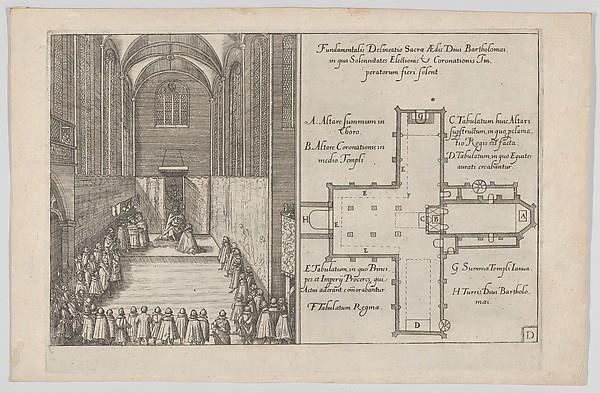 Fundamentalis Delineatio Sacræ Ædis Diui Bartholomæi,
in qua Solennitates Electionis & Coronationis Im,
peratorum fieri solent
A. Altare summum in
Choro.
B. Altare Coronationis in
medio Templi
C. Tabulatum huic Altari
superstructum, in quo proclama,
tio Regis est facta.
D. Tabulatum, in quo Equites
aurati creabantur.
G
E
F
E
H
E
C
B
A
E
D
E. Tabulatum, in quo Princi,
pes et Imperij Proceres, qui
Actui aderant, com̄orabantur
F. Tabulatum Reginæ.
G. Summa Templi Ianua.
H. Turris Diui Bartholo,
mæi.
D